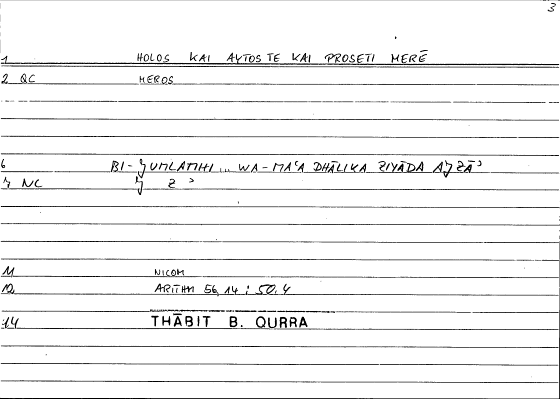 3
1 HOLOS KAI AYTOS TE KAI PROSETI MERĒ
2 QC MEROS
6 BI-ǧUMLATIHI... WA-MAʿA DHĀLIKA ZIYĀDA AǧZĀʾ
7 NC ǧ Z ʾ
11 NICOM
12 ARITHM 56,14 : 50.4
14 THĀBIT B. QURRA